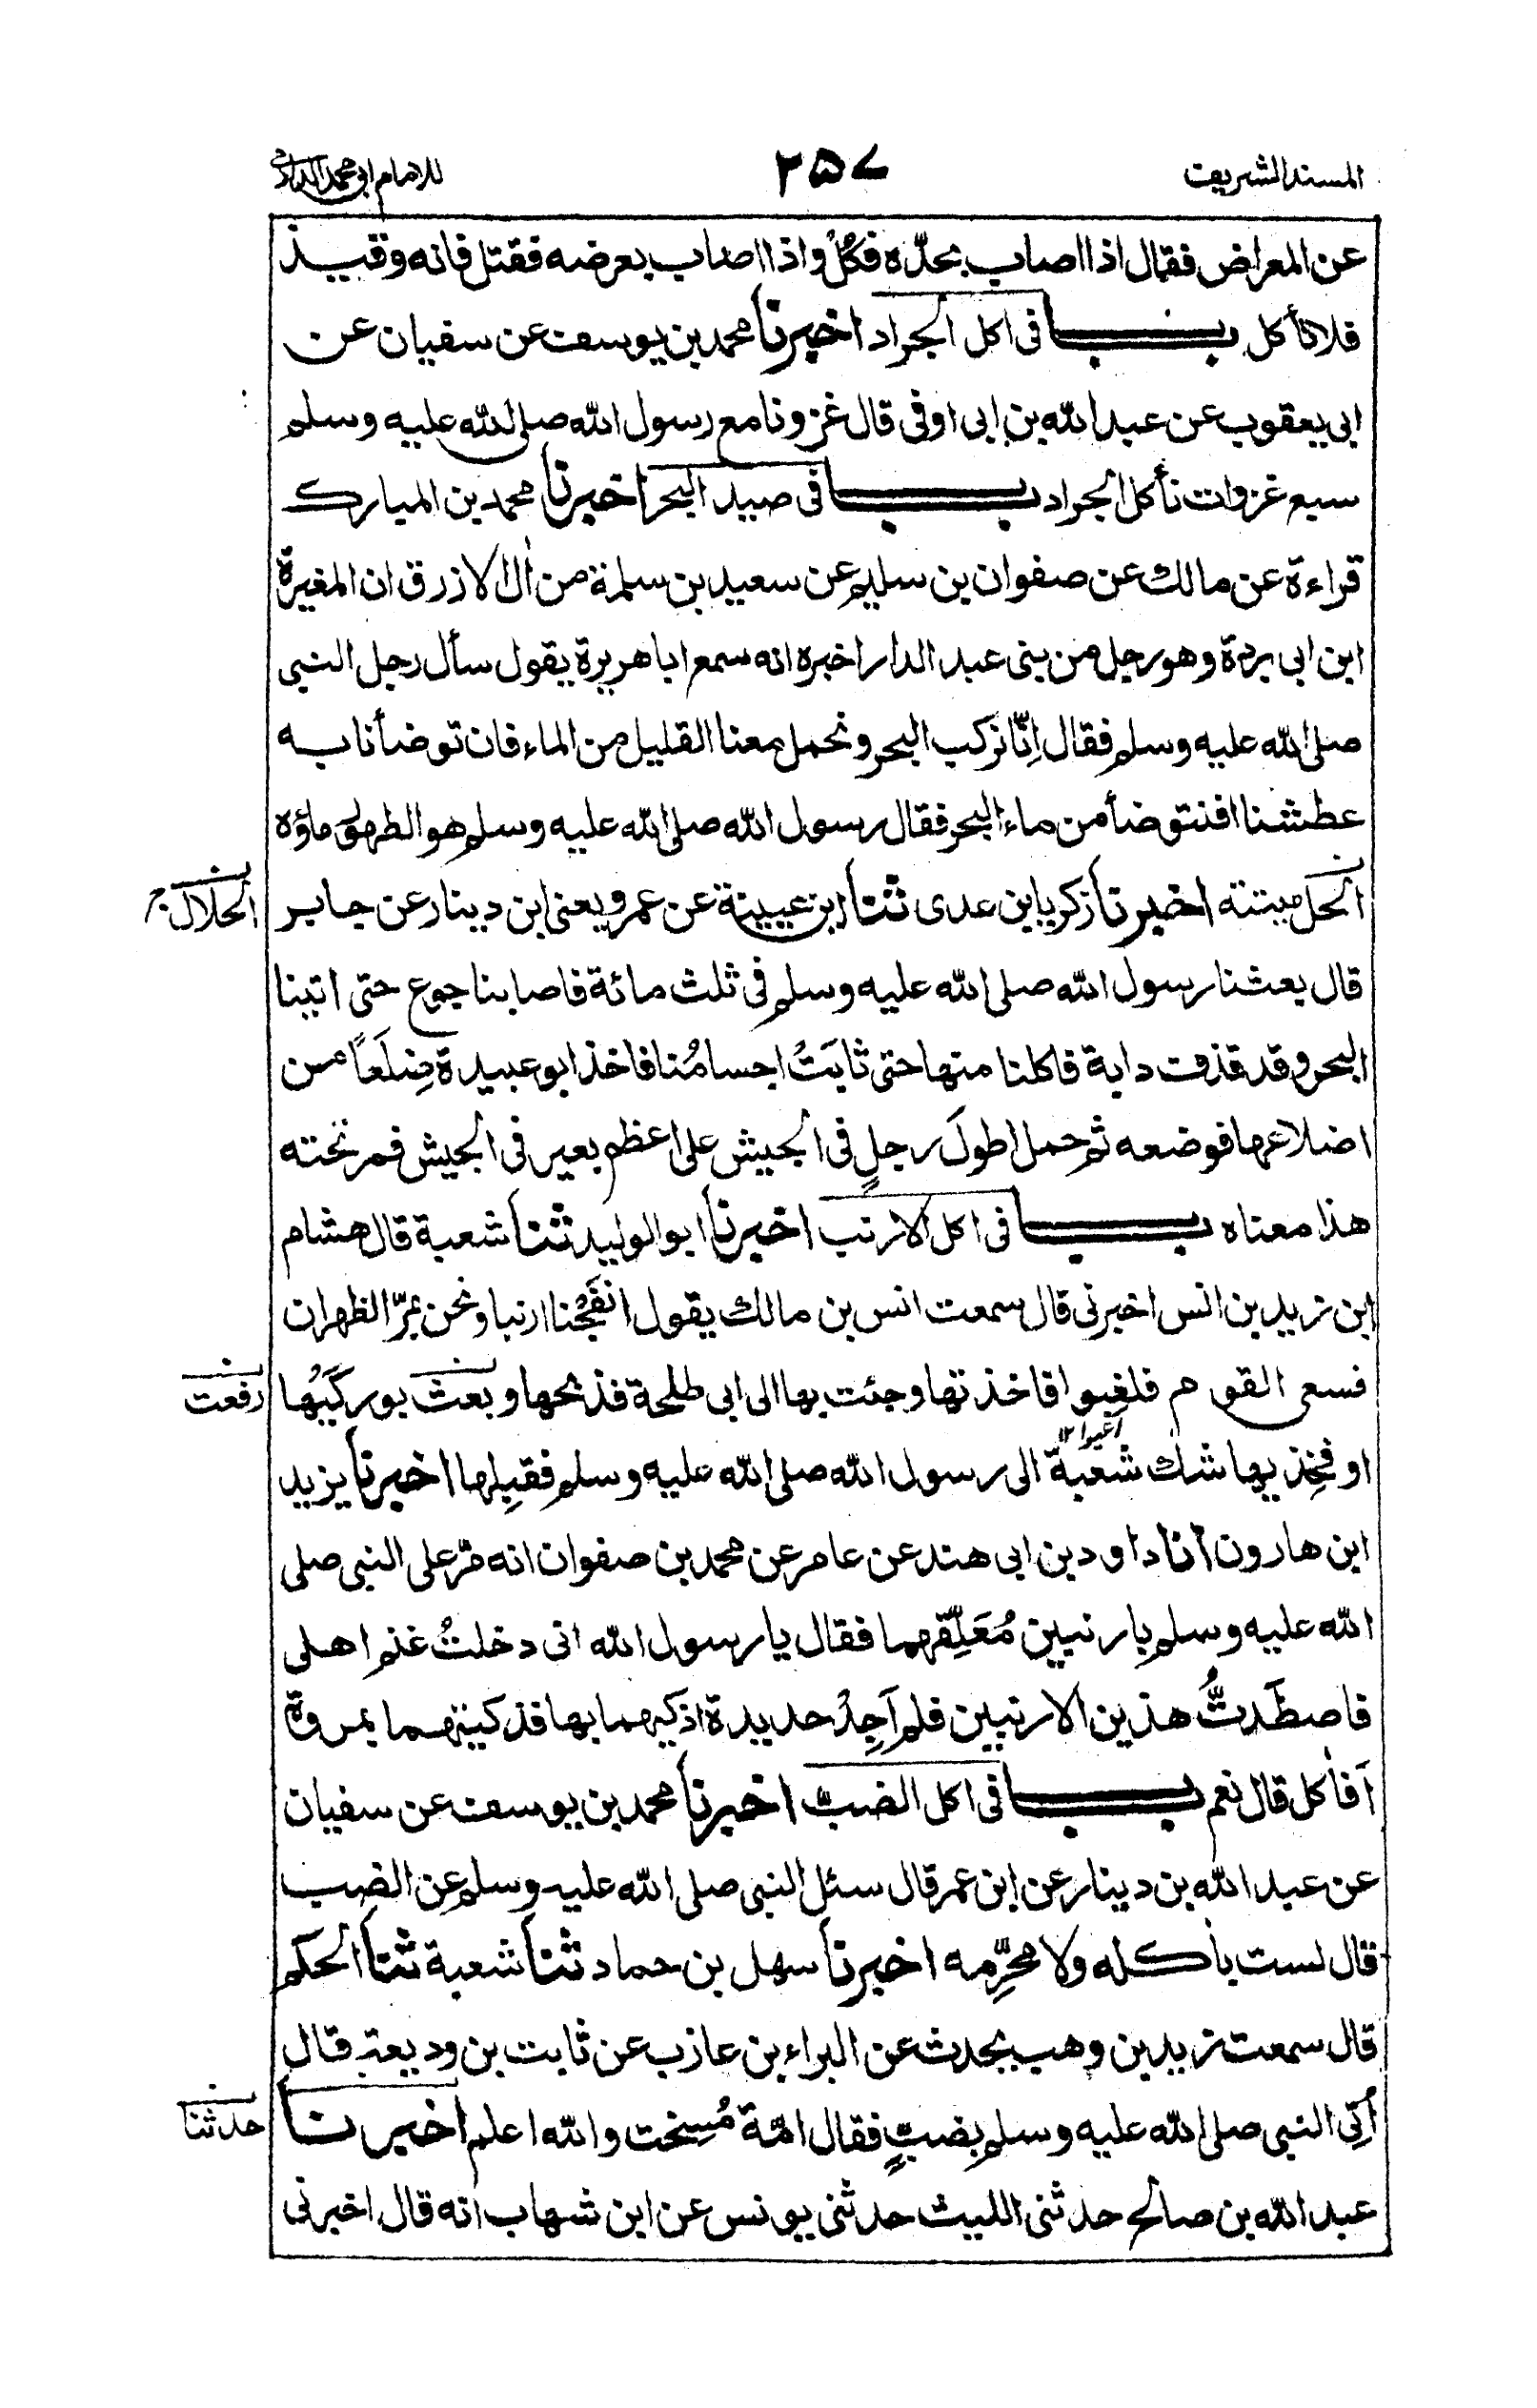 المسند الشريف
٢٥٧
للامام ابي محمد الدارمي
عن المعراض فقال اذا اصاب بحدّه فكُلْ واذا اصاب بعرضه فقتل فانه وقيذ
فلا تأكل باب فى اكل الجراد اخبرنا محمد بن يوسف عن سفيان عن
ابى يعقوب عن عبد الله بن ابى اوفى قال غزونا مع رسول الله صلى الله عليه وسلم
سبع غزوات نأكل الجراد باب فى صيد البحر اخبرنا محمد بن المبارك
قراءة عن مالك عن صفوان بن سليم عن سعيد بن سلمة من اٰل الازرق ان المغيرة
ابن ابى بردة وهو رجل من بنى عبد الدار اخبره انه سمع ابا هريرة يقول سأل رجل النبى
صلى الله عليه وسلم فقال اِنّا نركب البحر ونحمل معنا القليل من الماء فان توضأنا به
عطشنا افنتوضأ من ماء البحر فقال رسول الله صلى الله عليه وسلم هو الطهور ماؤه
الحل ميتته اخبرنا زكريا بن عدى ثنا ابن عيينة عن عمرو يعنى ابن دينار عن جابر
الحلال
قال بعثنا رسول الله صلى الله عليه وسلم فى ثلث مائة فاصابنا جوع حتى اتينا
البحر وقد قذف دابة فاكلنا منها حتى ثابَتْ اجسامُنا فاخذ ابو عبيدة ضِلَعًا من
اضلاعها فوضعه ثم حمل اطولَ رجلٍ فى الجيش على اعظم بعير فى الجيش فمر تحته
هذا معناه باب فى اكل الارنب اخبرنا ابو الوليد ثنا شعبة قال هشام
ابن زيد بن انس اخبرنى قال سمعت انس بن مالك يقول انفَجْنا ارنبا ونحن بمرّ الظهران
فسعى القوم فلغبوا فاخذتها وجئت بها الى ابى طلحة فذبحها وبعث بوركَيْها
رفعت
اعيوا ١٢
او فخِذيها شك شعبة الى رسول الله صلى الله عليه وسلم فقبِلها اخبرنا يزيد
ابن هارون انا داود بن ابى هند عن عامر عن محمد بن صفوان انه مرّ على النبى صلى
الله عليه وسلم بارنبين مُعَلِّقهما فقال يا رسول الله انى دخلتُ غنم اهلى
فاصطَدتُّ هذين الارنبين فلم اَجِدْ حديدة اذكيهما بها فذكيتهما بمروة
اَفاٰكل قال نعم باب فى اكل الضبّ اخبرنا محمد بن يوسف عن سفيان
عن عبد الله بن دينار عن ابن عمر قال سئل النبى صلى الله عليه وسلم عن الضب
فقال لست باٰكله ولا محرِّمه اخبرنا سهل بن حماد ثنا شعبة ثنا الحكم
قال سمعت زيد بن وهب يحدث عن البراء بن عازب عن ثابت بن وديعة قال
اُتِى النبى صلى الله عليه وسلم بضبٍّ فقال امّة مُسِخت والله اعلم اخبرنا
حدثنا
عبد الله بن صالح حدثنى الليث حدثنى يونس عن ابن شهاب انه قال اخبرنى